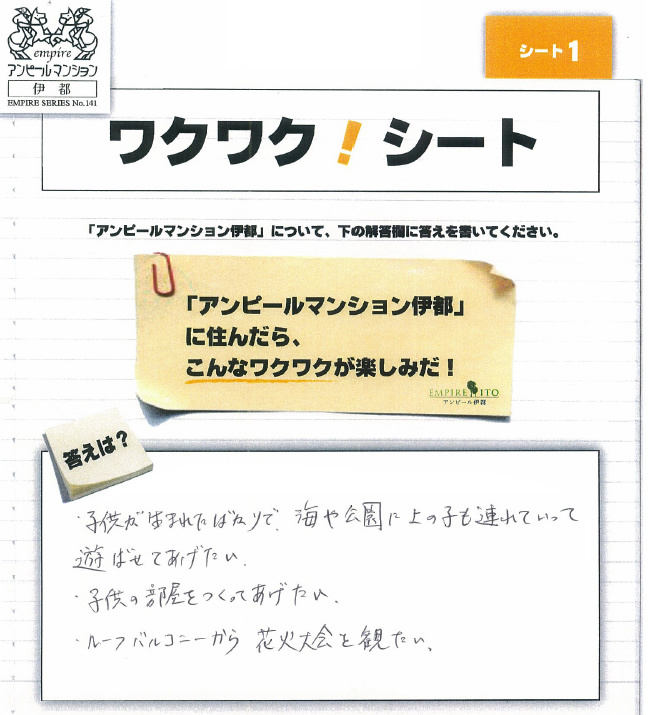 empire
アンピールマンション
伊都
EMPIRE SERIES No.141
シート1
ワクワク!シート
「アンピールマンション伊都」について、下の解答欄に答えを書いてください。
「アンピールマンション伊都」
に住んだら、
こんなワクワクが楽しみだ！
EMPIRE ITO
アンピール伊都
答えは？
・子供が生まれたばかりで、海や公園に上の子も連れていって
遊ばせてあげたい．
・子供の部屋をつくってあげたい．
・ルーフバルコニーから 花火大会を観たい。